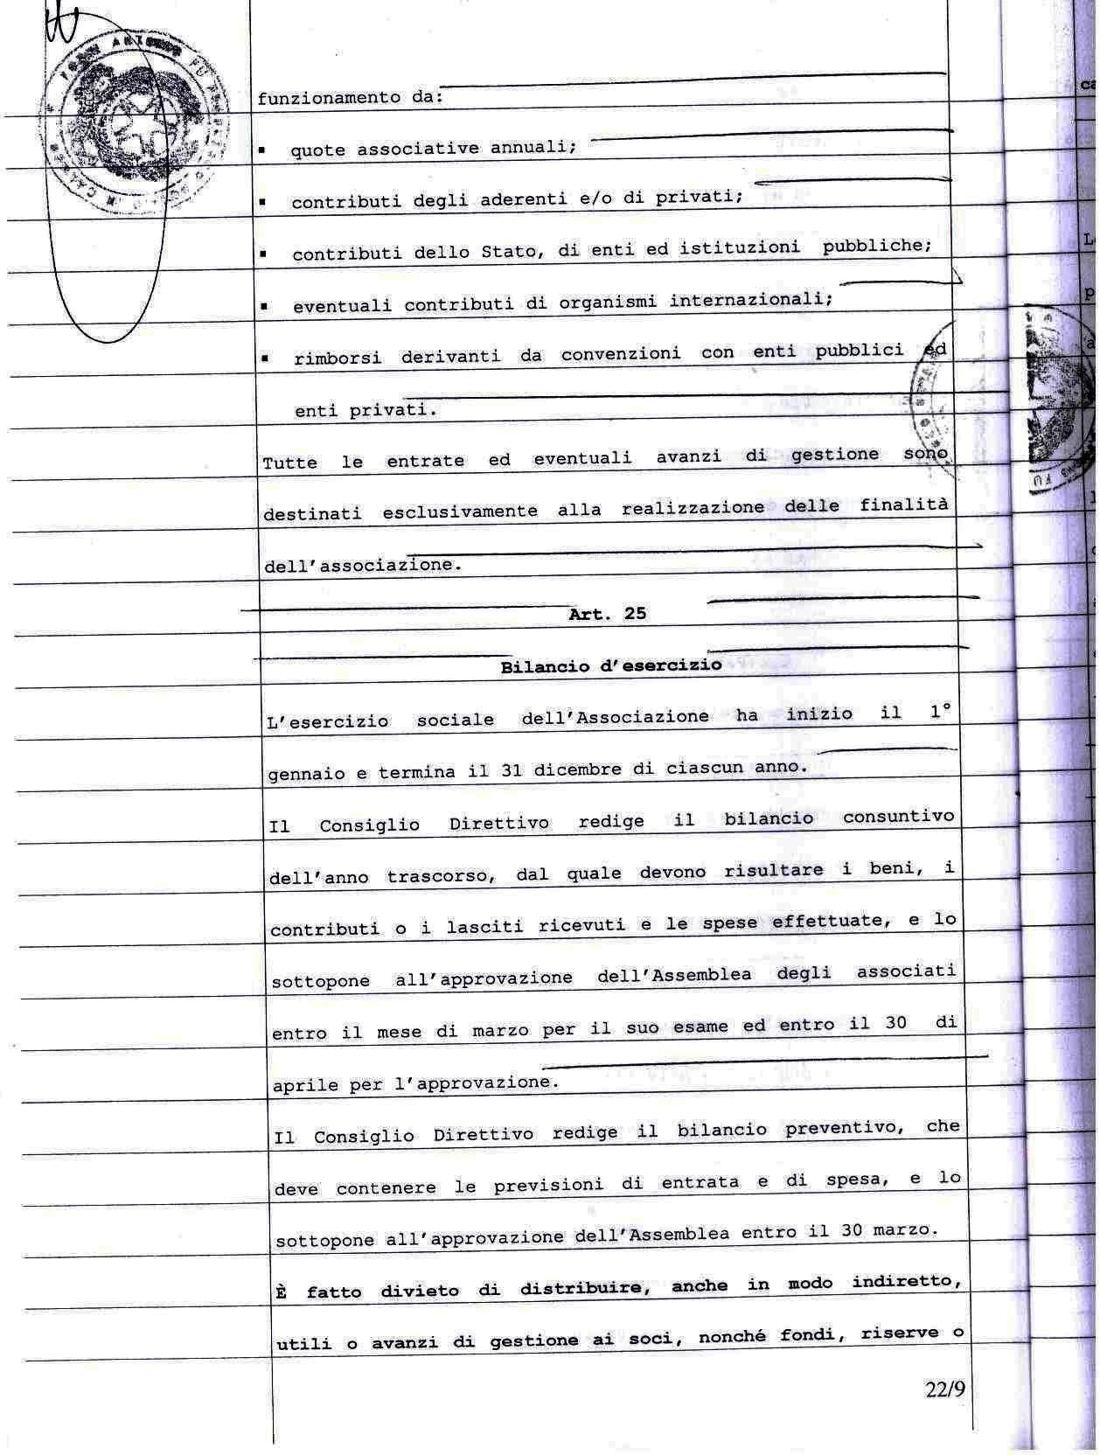 funzionamento da:
▪ quote associative annuali;
▪ contributi degli aderenti e/o di privati;
▪ contributi dello Stato, di enti ed istituzioni pubbliche;
▪ eventuali contributi di organismi internazionali;
▪ rimborsi derivanti da convenzioni con enti pubblici ed
enti privati.
Tutte le entrate ed eventuali avanzi di gestione sono
destinati esclusivamente alla realizzazione delle finalità
dell'associazione.
Art. 25
Bilancio d'esercizio
L'esercizio sociale dell'Associazione ha inizio il 1°
gennaio e termina il 31 dicembre di ciascun anno.
Il Consiglio Direttivo redige il bilancio consuntivo
dell'anno trascorso, dal quale devono risultare i beni, i
contributi o i lasciti ricevuti e le spese effettuate, e lo
sottopone all'approvazione dell'Assemblea degli associati
entro il mese di marzo per il suo esame ed entro il 30 di
aprile per l'approvazione.
Il Consiglio Direttivo redige il bilancio preventivo, che
deve contenere le previsioni di entrata e di spesa, e lo
sottopone all'approvazione dell'Assemblea entro il 30 marzo.
È fatto divieto di distribuire, anche in modo indiretto,
utili o avanzi di gestione ai soci, nonché fondi, riserve o
22/9